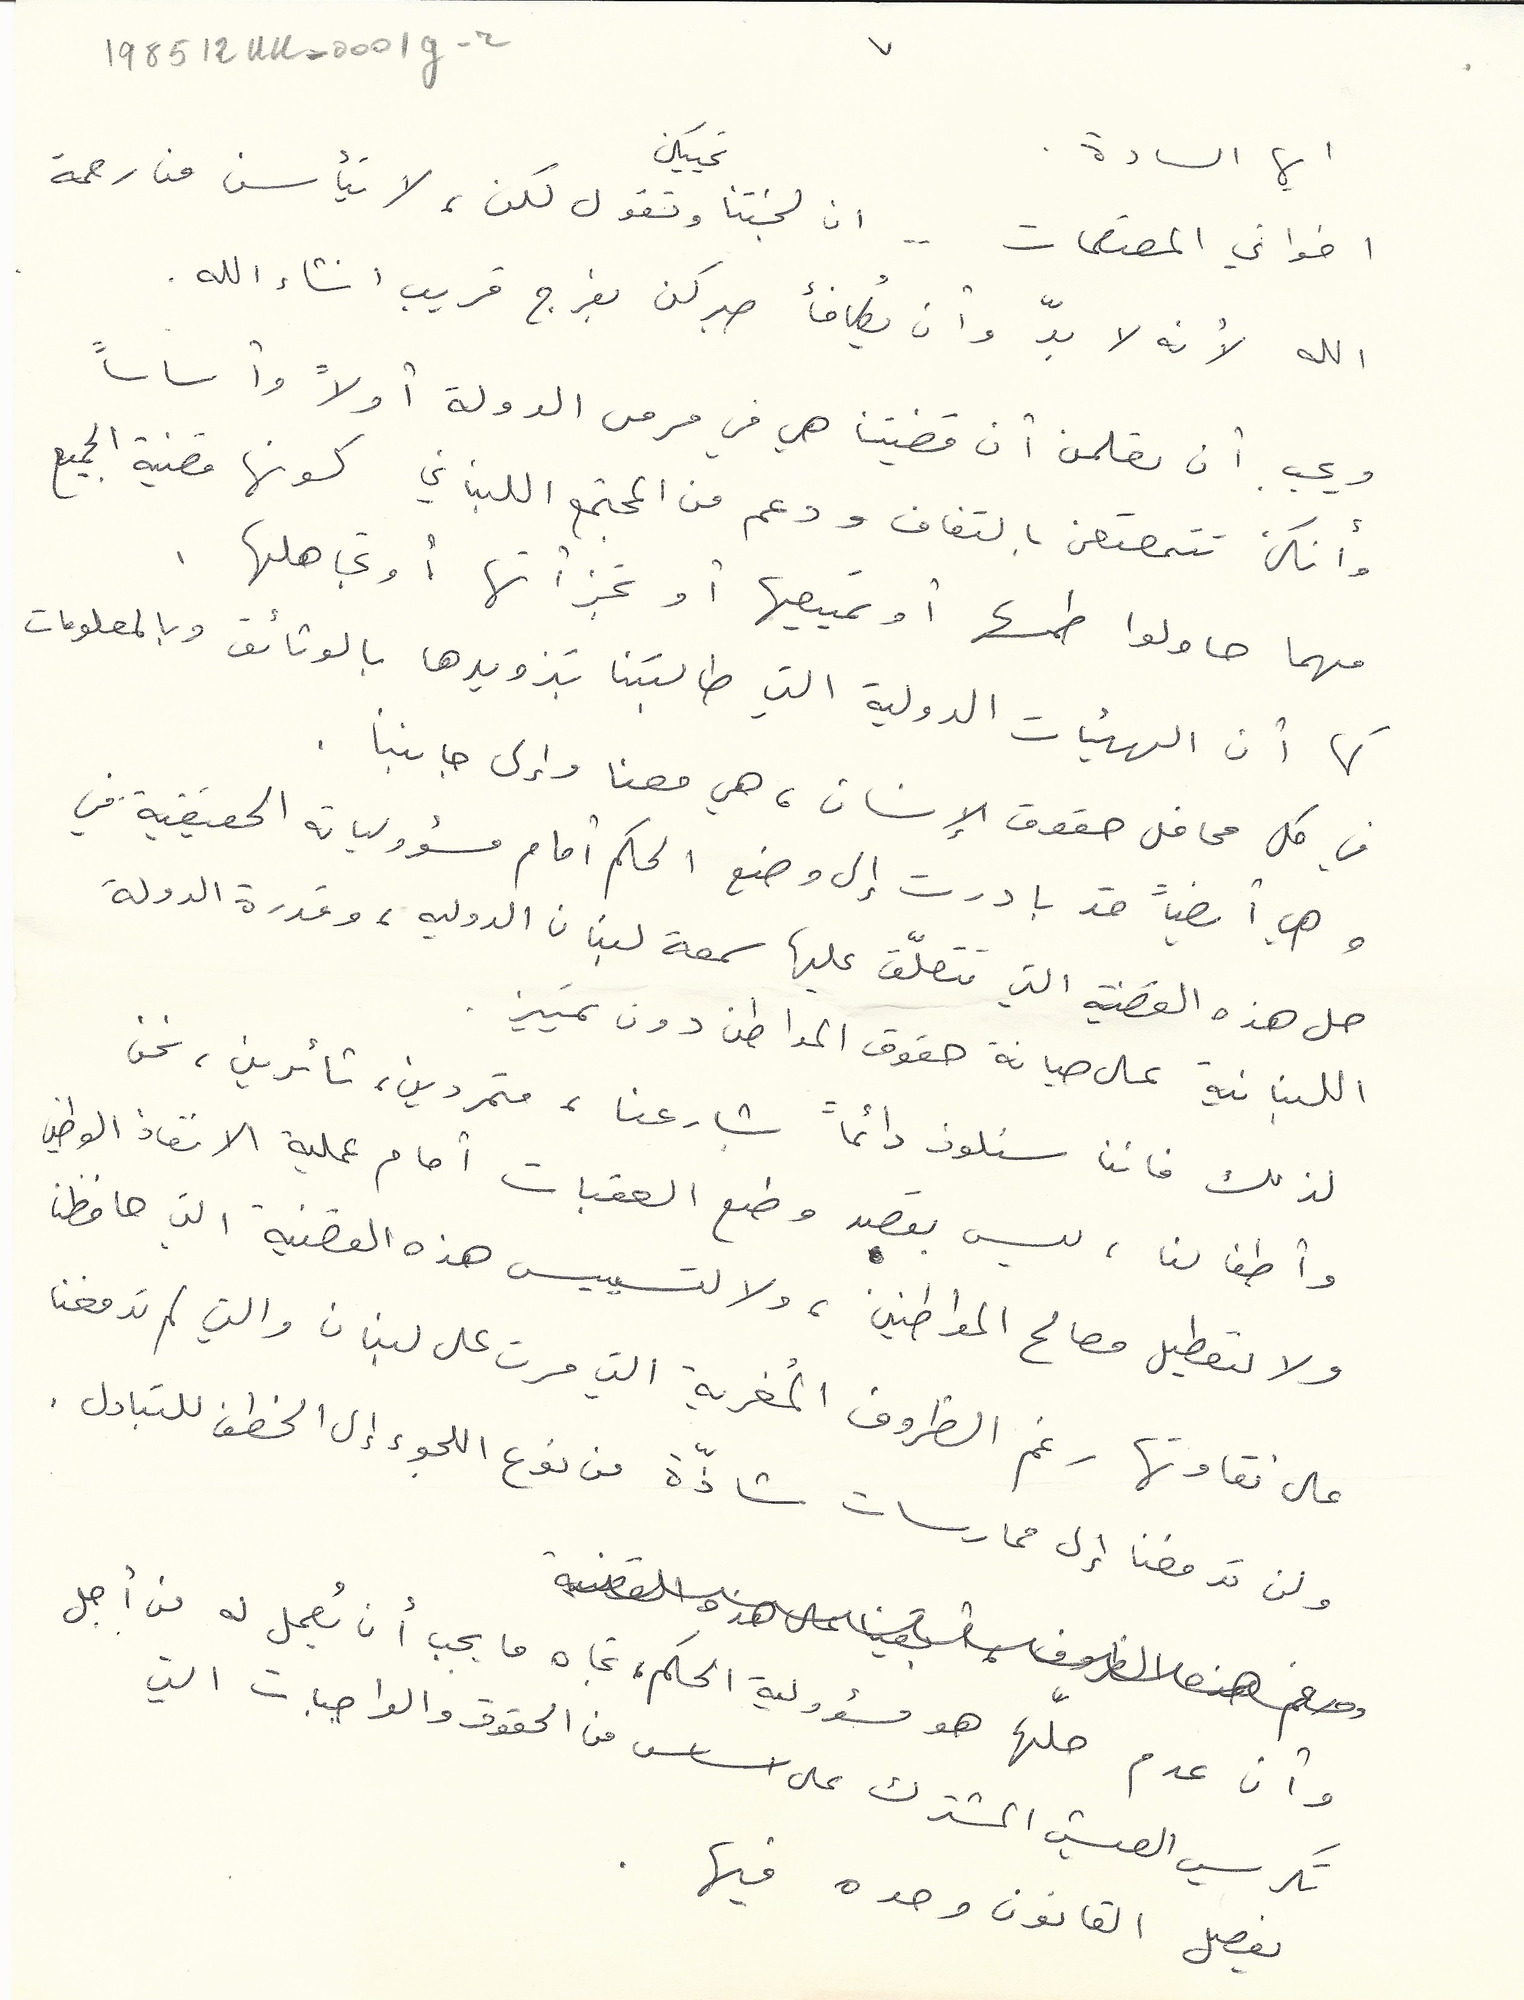 198512UU-0001g-2
٧
ايها السادة .
تحييكن
اخواتي المعتصمات .. ان لجنتنا وتقول لكن، لا تيأسن من رحمة
الله لأنه لا بدّ وأن يُكافأ صبركن بفرج قريب انشاء الله .
ويجب أن تعلمن أن قضيتنا هي في مرمى الدولة أولاً وأساساً
وأنكنّ تتمتعن بالتفاف ودعم من المجتمع اللبناني كونها قضية الجميع
مهما حاولوا طمسها أو تمييعها أو تجزأتها أو تجاهلها .
كما أن الهيئات الدولية التي طالبتنا بتزويدها بالوثائق وبالمعلومات
في كل محافل حقوق الإنسان، هي معنا وإلى جانبنا .
وهي أيضاً قد بادرت إلى وضع الحكم أمام مسؤولياته الحقيقية في
حل هذه القضية التي تتعلّق عليها سمعة لبنان الدولية، وقدرة الدولة
اللبنانية على صيانة حقوق المواطن دون تمييز .
لذلك فاننا سنلوذ دائماً بشارعنا، متمردين، ثائرين، نحن
وأطفالنا، ليس بقصد وضع العقبات أمام عملية الانقاذ الوطني
ولا لتعطيل مصالح المواطنين، ولا لتسييس هذه القضية التي حافظنا
على نقاوتها رغم الظروف المُغرية التي مرت على لبنان والتي لم تدفعنا
ولن تدفعنا إلى ممارسات شاذّة من نوع اللجوء إلى الخطف للتبادل .
ورغم هذه الظروف أبقينا على هذه القضية
وأن عدم حلّها هو مسؤولية الحكم، تجاه ما يجب أن يُعمل له من أجل
تكريس العيش المشترك على اساس من الحقوق والواجبات التي
يفصل القانون وحده فيها .